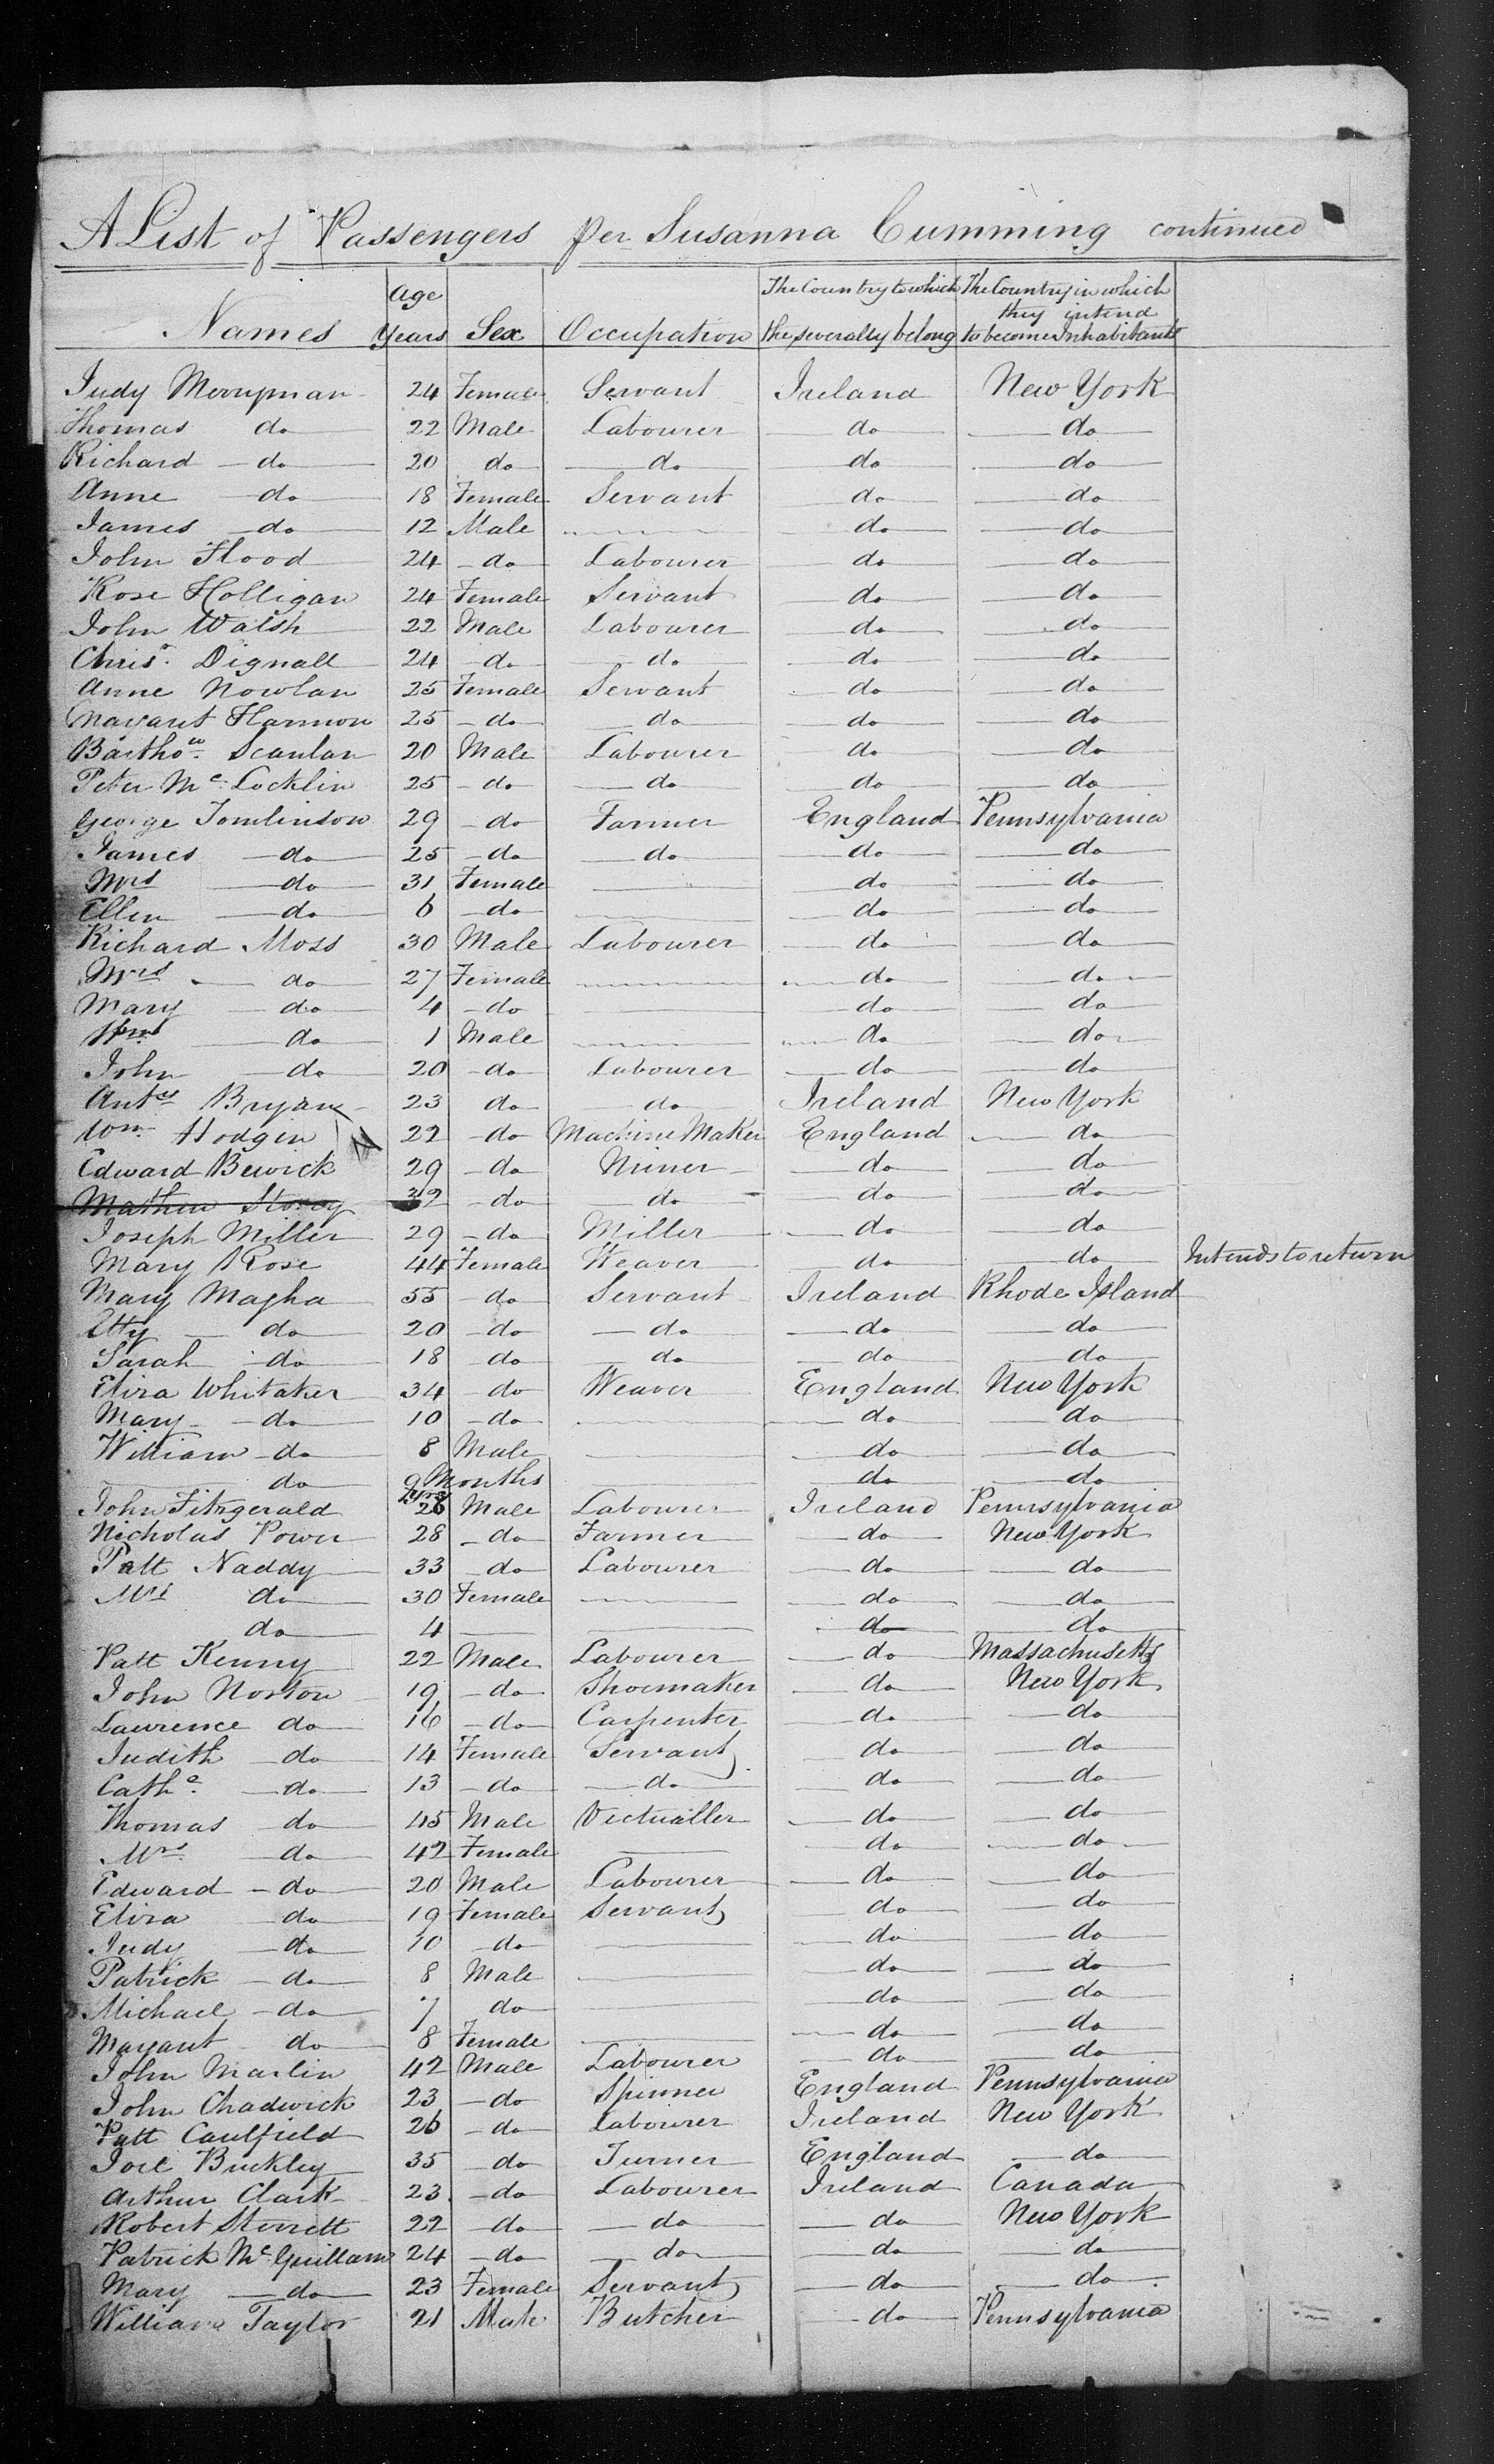 A List of Passengers per Susanna Cumming continued
Names Age Years Sex Occupation The Country to which the severally belong The Country in which they intend to become Inhabitants
Judy Merryman 24 Female Servant Ireland New York
Thomas do 22 Male Labourer do do
Richard do 20 do do do do
Anne do 18 Female Servant do do
James do 12 Male do do
John Flood 24 do Labourer do do
Rose Holligan 24 Female Servant do do
John Walsh 22 Male Labourer do do
Chrisr. Dignall 24 do do do do
Anne Nowlan 25 Female Servant do do
Margaret Harmon 25 do do do do
Barthow. Scanlan 20 Male Labourer do do
Peter McLocklin 25 do do do do
George Tomlinson 29 do Farmer England Pennsylvania
James do 25 do do do do
Mrs do 31 Female do do
Ellen do 6 do do do
Richard Moss 30 Male Labourer do do
Mrs do 27 Female do do
Mary do 4 do do do
Wm do 1 Male do do
John do 20 do Labourer do do
Anty Bryan 23 do do Ireland New York
Wm. Hodgin 22 do Machine Maker England do
Edward Bewick 29 do Miner do do
Mathew Storey 32 do do do do
Joseph Miller 29 do Miller do do
Mary Rose 44 Female Weaver do do Intends to return
Mary Magha 55 do Servant Ireland Rhode Island
Etty do 20 do do do do
Sarah do 18 do do do do
Eliza Whitaker 34 do Weaver England New York
Mary do 10 do do do
William do 8 Male do do
do 9 Months do do
John Fitzgerald yrs 26 Male Labourer Ireland Pennsylvania
Nicholas Power 28 do Farmer do New York
Patt Naddy 33 do Labourer do do
Mrs do 30 Female do do
do 4 do do
Patt Kenny 22 Male Labourer do Massachusetts
John Norton 19 do Shoemaker do New York
Lawrence do 16 do Carpenter do do
Judith do 14 Female Servant do do
Cathe. do 13 do do do do
Thomas do 45 Male Victualler do do
Mrs do 42 Female do do
Edward do 20 Male Labourer do do
Eliza do 19 Female Servant do do
Judy do 10 do do do
Patrick do 8 Male do do
Michael do 7 do do do
Margaret do 8 Female do do
John Marlin 42 Male Labourer do do
John Chadwick 23 do Spinner England Pennsylvania
Patt Caulfield 26 do Labourer Ireland New York
Joel Buckley 35 do Turner England do
Arthur Clark 23 do Labourer Ireland Canada
Robert Sterrett 22 do do do New York
Patrick McQuillam 24 do do do do
Mary do 23 Female Servant do do
William Taylor 21 Male Butcher do Pennsylvania